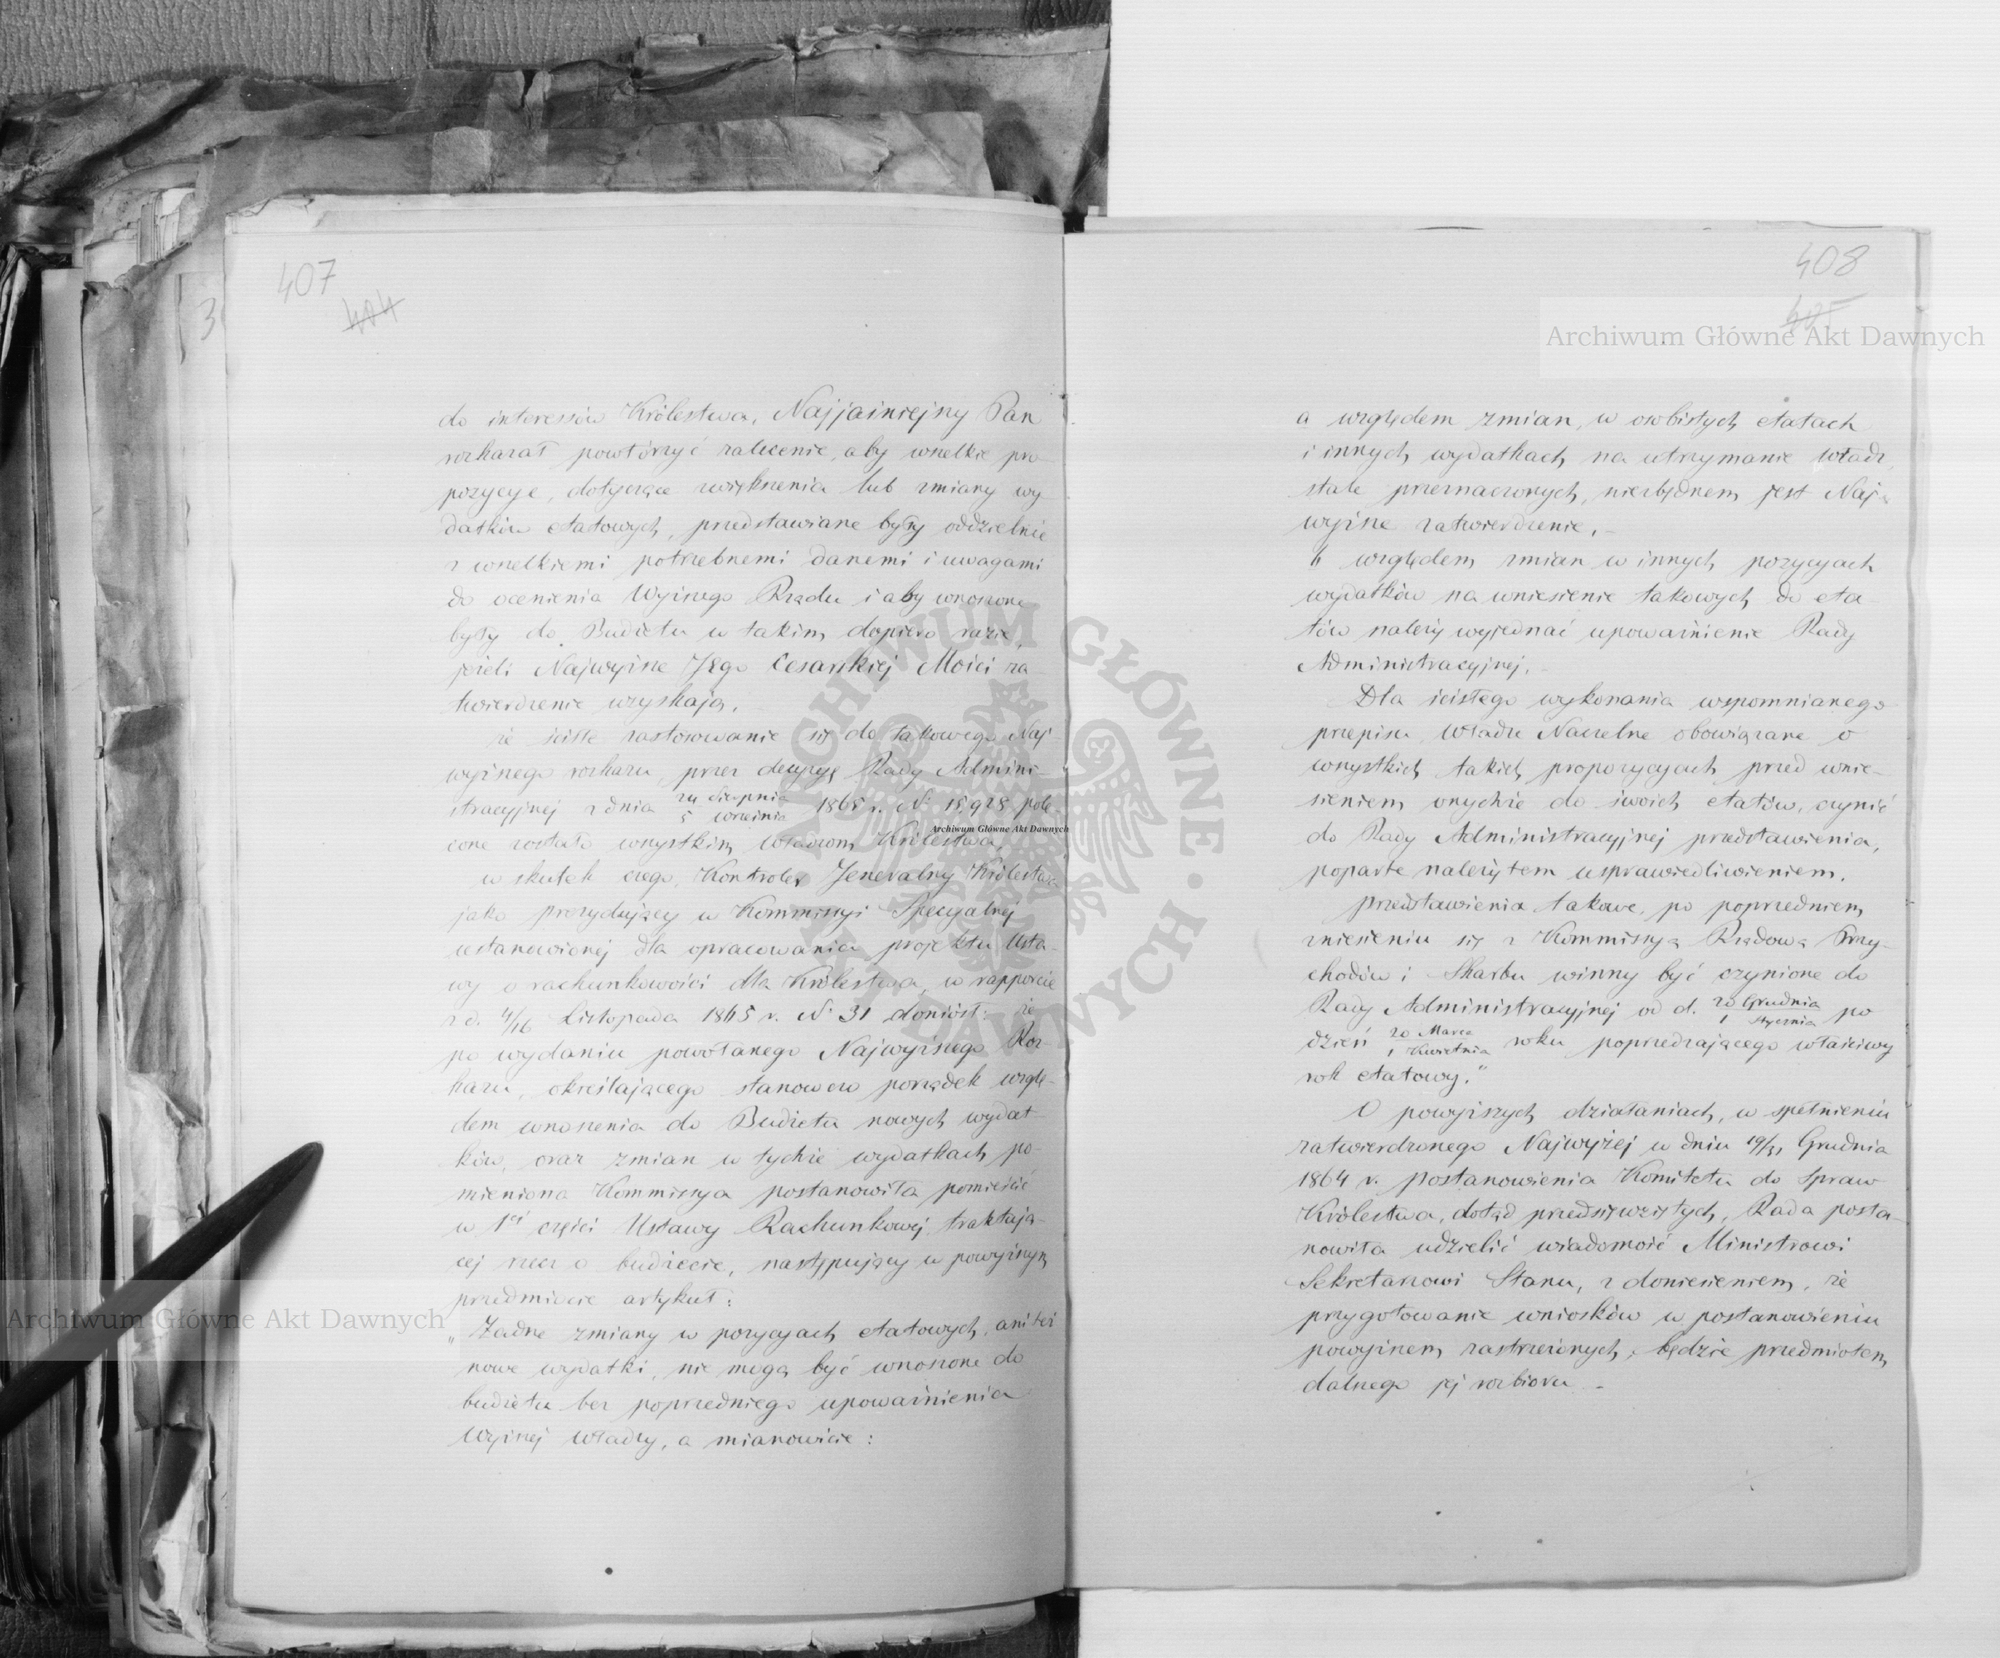 407
404
3
do interessów Królestwa, Najjaśniejszy Pan
rozkazał powtórzyć zalecenie, aby wszelkie pro-
pozycye, dotyczące zwiększenia lub zmiany wy-
datków etatowych, przedstawiane były oddzielnie
z wszelkiemi potrzebnemi danemi i uwagami
do ocenienia Wyższego Rządu i aby wnoszone
były do Budżetu w takim dopiero razie,
jeżeli Najwyższe Jego Cesarskiej Mości za-
twierdzenie uzyskają.
że ściśłe zastosowanie się do takowego Naj-
wyższego rozkazu, przez decyzyę Rady Admini-
stracyjnej z dnia 24 Sierpnia / 5 Września 1865 r. N: 15,928 pole-
cone zostało wszystkim Władzom Królestwa,
w skutek czego, Kontroler Jeneralny Królestwa
jako prezydujący w Kommissyi Specyalnej
ustanowionej dla opracowania projektu Usta-
wy o rachunkowości dla Królestwa, w rapporcie
z d. 4/16 Listopada 1865 r. N: 31 doniósł: że
po wydaniu powołanego Najwyższego Roz-
kazu, określającego stanowczo porządek wzglę-
dem wnoszenia do Budżetu nowych wydat-
ków, oraz zmian w tychże wydatkach, po-
mieniona Kommissya postanowiła pomieścić
w 1éj części Ustawy Rachunkowej, traktują-
cej rzecz o budżecie, następujący w powyższym
przedmiocie artykuł:
„Żadne zmiany w pozycyach etatowych, ani też
nowe wydatki, nie mogą być wnoszone do
budżetu bez poprzedniego upoważnienia
Wyższej Władzy, a mianowicie:
408
405
a względem zmian, w osobistych etatach
i innych wydatkach, na utrzymanie Władz,
stale przeznaczonych, niezbędnem jest Naj-
wyższe zatwierdzenie.
b względem zmian w innych pozycyach
wydatków na wniesienie takowych do eta-
tów należy wyjednać upoważnienie Rady
Administracyjnej.
Dla ścisłego wykonania wspomnianego
przepisu Władze Naczelne obowiązane o
wszystkich takich propozycyach przed wnie-
sieniem onychże do swoich etatów, czynić
do Rady Administracyjnej przedstawienia,
poparte należytem usprawiedliwieniem.
przedstawienia takowe, po poprzedniem
zniesieniu się z Kommissyą Rządową Przy-
chodów i Skarbu winny być czynione do
Rady Administracyjnej od d. 20 Grudnia / 1 Stycznia po
dzień 20 Marca / 1 Kwietnia roku poprzedzającego właściwy
rok etatowy."
O powyższych działaniach, w spełnieniu
zatwierdzonego Najwyżej w dniu 19/31 Grudnia
1864 r. postanowienia Komitetu do Spraw
Królestwa, dotąd przedsięwziętych, Rada posta-
nowiła udzielić wiadomość Ministrowi
Sekretarzowi Stanu, z doniesieniem, że
przygotowanie wniosków w postanowieniu
powyższem zastrzeżonych, będzie przedmiotem
dalszego jej rozbioru.
Archiwum Główne Akt Dawnych
Archiwum Główne Akt Dawnych
Archiwum Główne Akt Dawnych
ARCHIWUM GŁÓWNE AKT DAWNYCH